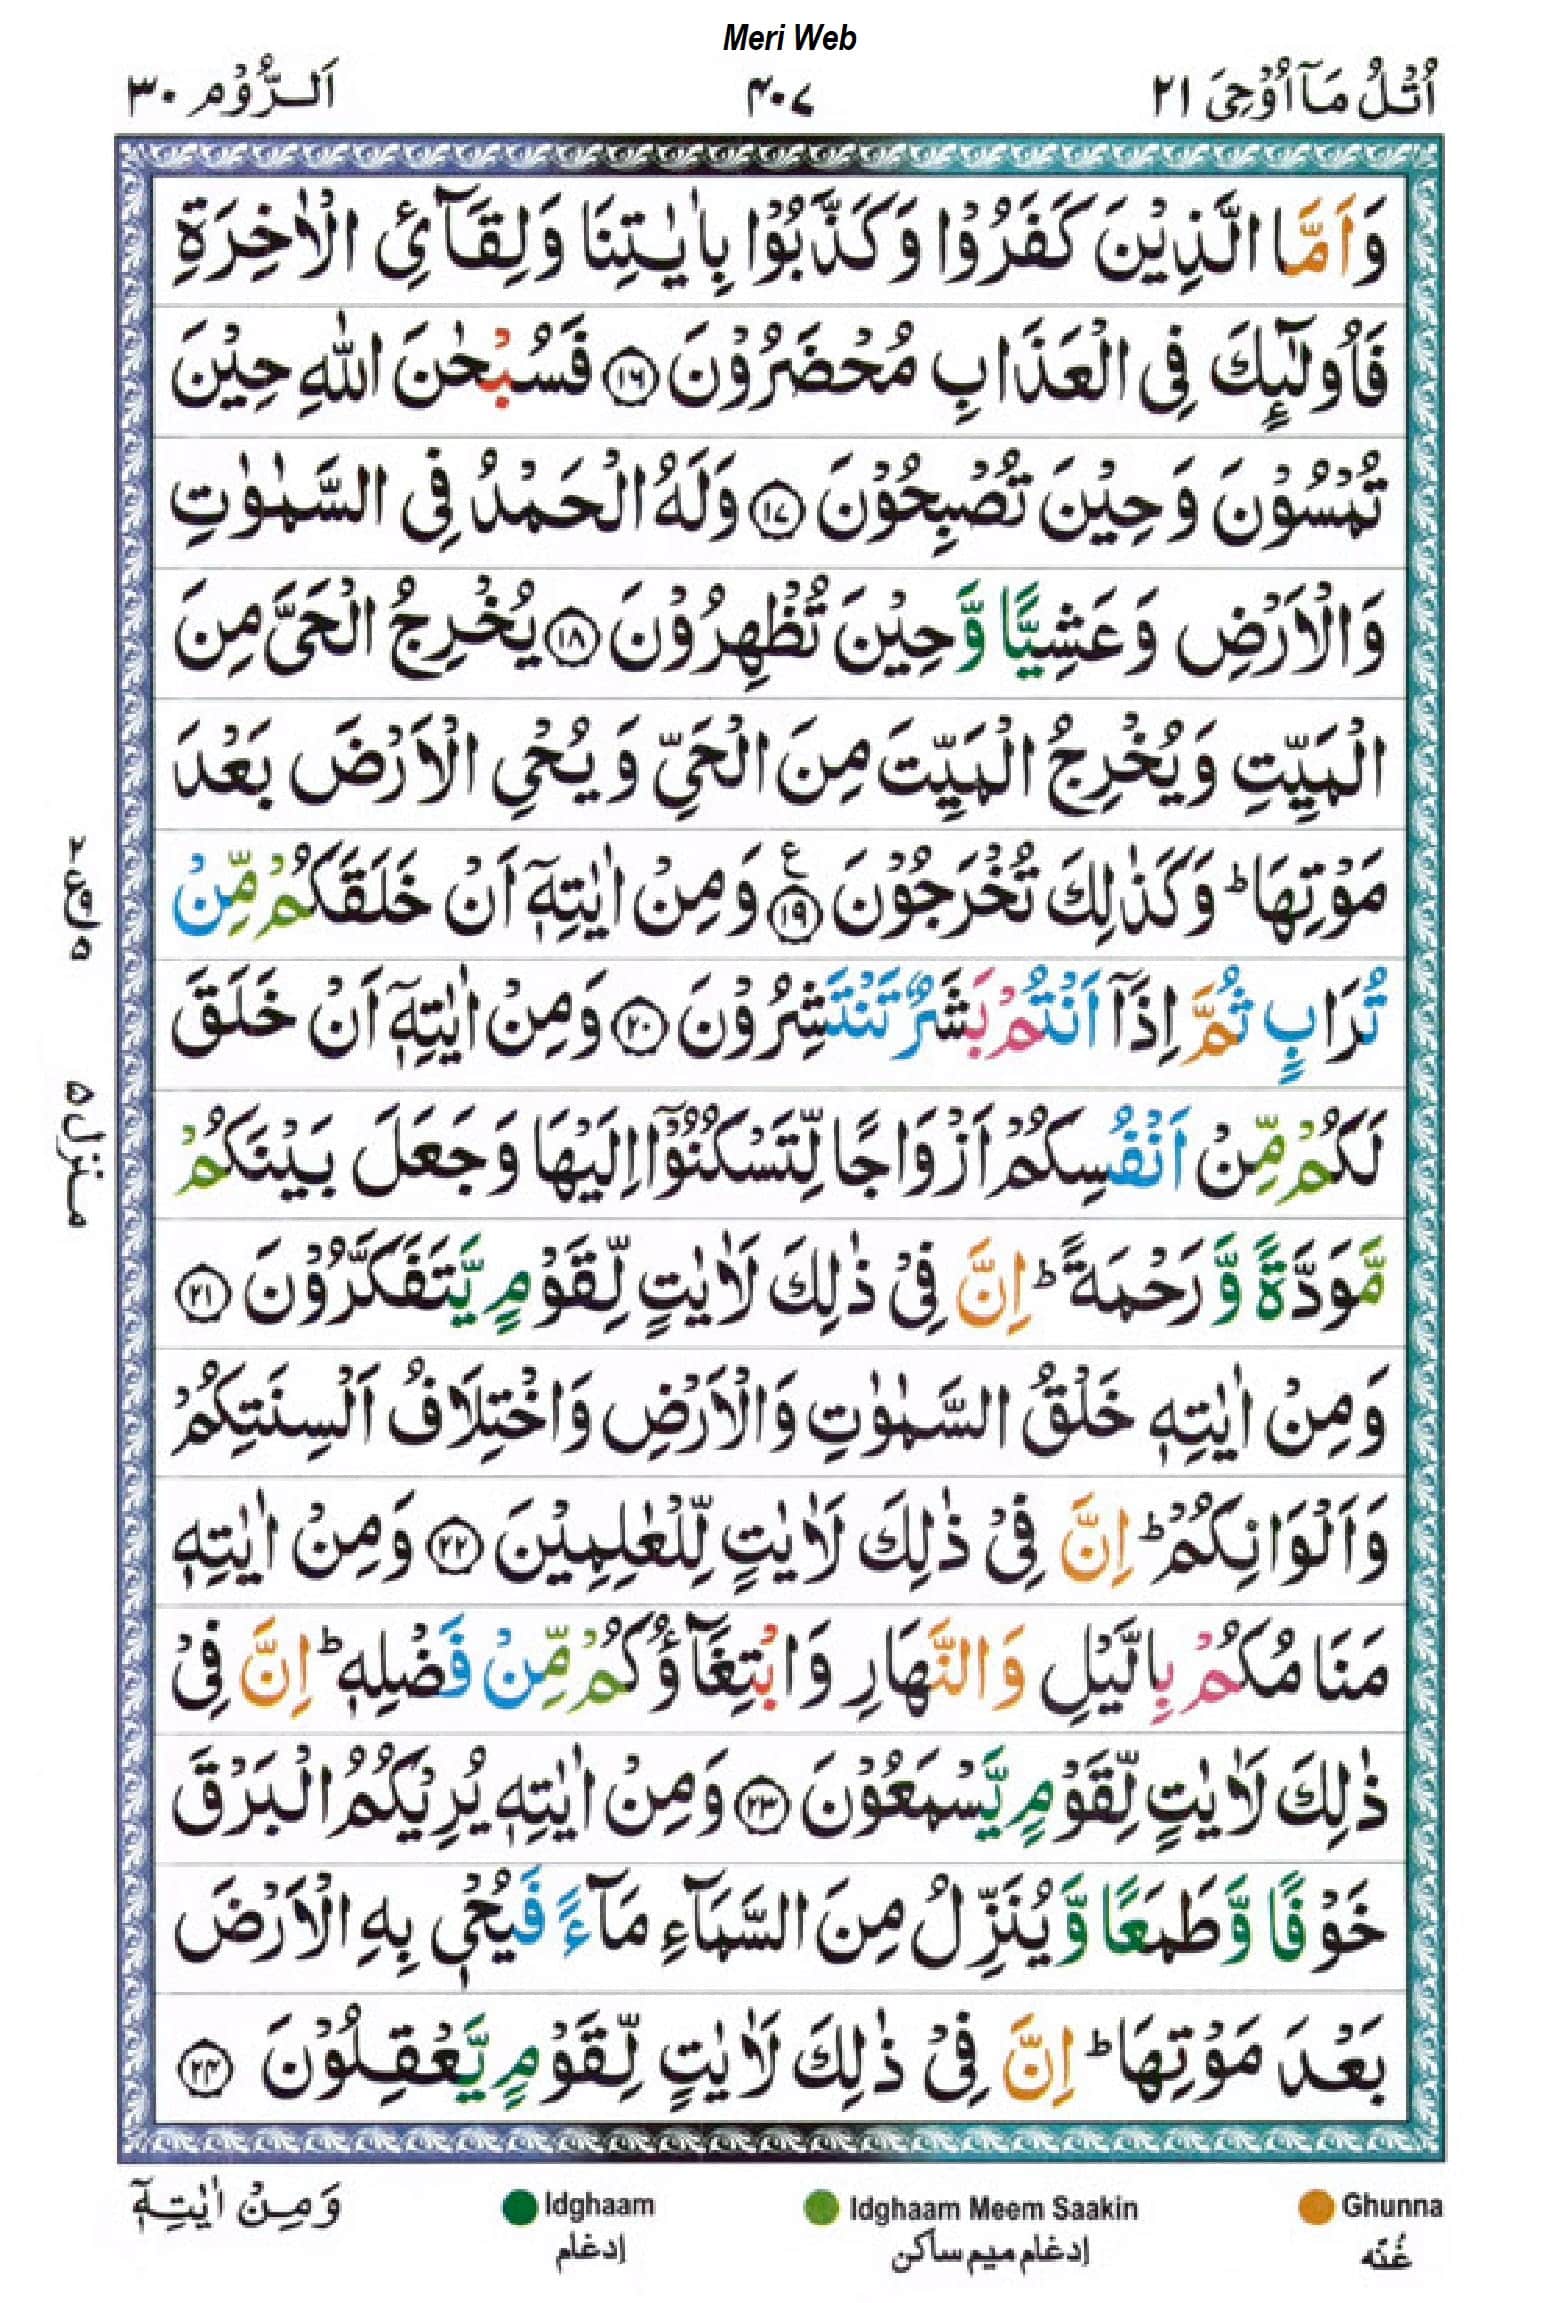 Meri Web
اُتْلُ مَاۤ اُوْحِیَ ۲۱
۴۰۷
اَلرُّوْم ۳۰
وَاَمَّا الَّذِیْنَ كَفَرُوْا وَكَذَّبُوْا بِاٰیٰتِنَا وَلِقَآئِ الْاٰخِرَةِ
فَاُولٰٓىِٕكَ فِی الْعَذَابِ مُحْضَرُوْنَ ۱۶ فَسُبْحٰنَ اللّٰهِ حِیْنَ
تُمْسُوْنَ وَحِیْنَ تُصْبِحُوْنَ ۱۷ وَلَهُ الْحَمْدُ فِی السَّمٰوٰتِ
وَالْاَرْضِ وَعَشِیًّا وَّحِیْنَ تُظْهِرُوْنَ ۱۸ یُخْرِجُ الْحَیَّ مِنَ
الْمَیِّتِ وَیُخْرِجُ الْمَیِّتَ مِنَ الْحَیِّ وَیُحْیِ الْاَرْضَ بَعْدَ
مَوْتِهَا ؕ وَكَذٰلِكَ تُخْرَجُوْنَ ۱۹ ع وَمِنْ اٰیٰتِهٖۤ اَنْ خَلَقَكُمْ مِّنْ
تُرَابٍ ثُمَّ اِذَاۤ اَنْتُمْ بَشَرٌ تَنْتَشِرُوْنَ ۲۰ وَمِنْ اٰیٰتِهٖۤ اَنْ خَلَقَ
لَكُمْ مِّنْ اَنْفُسِكُمْ اَزْوَاجًا لِّتَسْكُنُوْۤا اِلَیْهَا وَجَعَلَ بَیْنَكُمْ
مَّوَدَّةً وَّرَحْمَةً ؕ اِنَّ فِیْ ذٰلِكَ لَاٰیٰتٍ لِّقَوْمٍ یَّتَفَكَّرُوْنَ ۲۱
وَمِنْ اٰیٰتِهٖ خَلْقُ السَّمٰوٰتِ وَالْاَرْضِ وَاخْتِلَافُ اَلْسِنَتِكُمْ
وَاَلْوَانِكُمْ ؕ اِنَّ فِیْ ذٰلِكَ لَاٰیٰتٍ لِّلْعٰلِمِیْنَ ۲۲ وَمِنْ اٰیٰتِهٖ
مَنَامُكُمْ بِالَّیْلِ وَالنَّهَارِ وَابْتِغَآؤُكُمْ مِّنْ فَضْلِهٖ ؕ اِنَّ فِیْ
ذٰلِكَ لَاٰیٰتٍ لِّقَوْمٍ یَّسْمَعُوْنَ ۲۳ وَمِنْ اٰیٰتِهٖ یُرِیْكُمُ الْبَرْقَ
خَوْفًا وَّطَمَعًا وَّیُنَزِّلُ مِنَ السَّمَآءِ مَآءً فَیُحْیٖ بِهِ الْاَرْضَ
بَعْدَ مَوْتِهَا ؕ اِنَّ فِیْ ذٰلِكَ لَاٰیٰتٍ لِّقَوْمٍ یَّعْقِلُوْنَ ۲۴
۲
ع
۵
منزل ۵
Ghunna
غُنّہ
Idghaam Meem Saakin
إدغام میم ساکن
Idghaam
إدغام
وَمِنْ اٰیٰتِهٖۤ